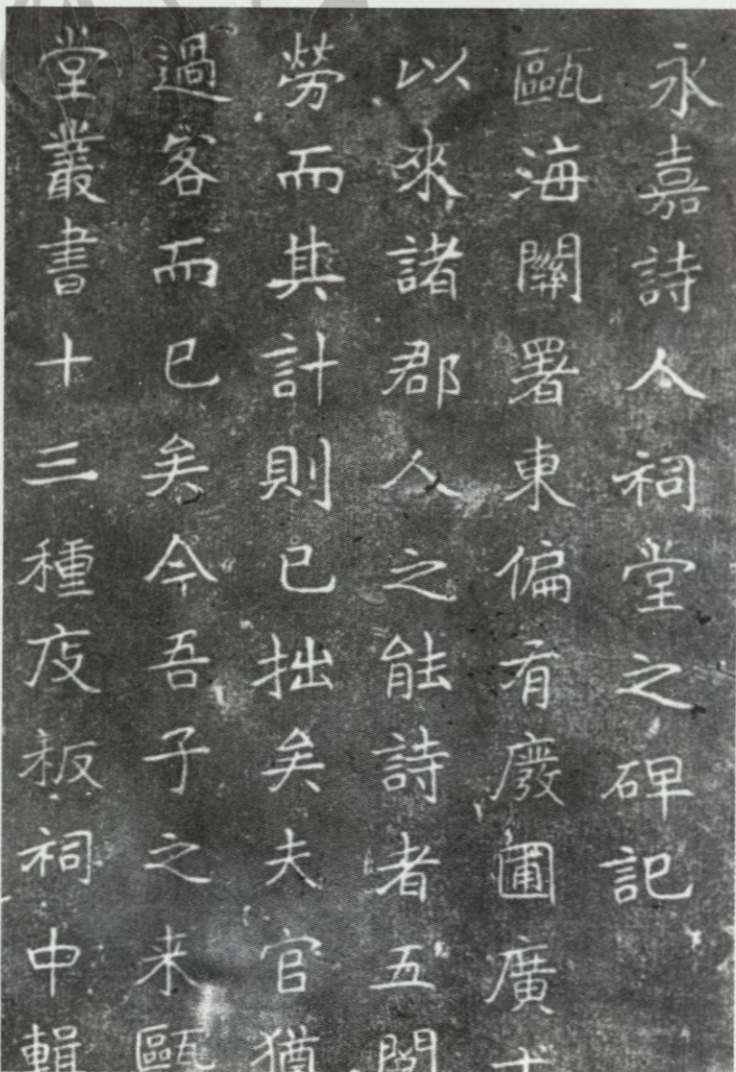 永嘉詩人祠堂之碑記
甌海關署東偏有廢圃廣
以來諸郡人之能詩者五
勞而其計則已拙矣夫官猶
過客而已矣今吾子之来甌
堂叢書十三種庋板祠中輯